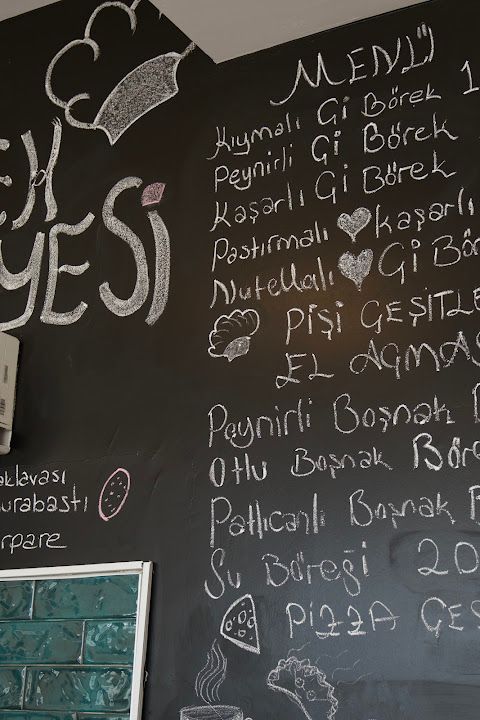 YESİ
MENÜ
Kıymalı Gi Börek
Peynirli Gi Börek
Kaşarlı Gi Börek
Pastırmalı kaşarlı
Nutellalı Gi
PİŞİ ÇEŞİTLE
EL AÇMAS
Peynirli Boşnak
Otlu Boşnak Böre
Patlıcanlı Boşnak
Su Böreği 20
PİZZA ÇEŞ
aklavası
urabastı
rpare